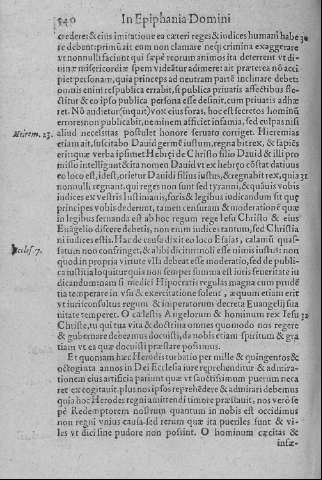 540 In Epiphania Domini
crederet & eius imitatione ea cæteri reges & iudices humani habe 30
re debent: primũ ait eum non clamare neq; crimina exaggerare
vt nonnulli faciunt qui sæpè reorum animos ita deterrent vt di-
uinæ misericordiæ spem videãtur adimere: ait præterea nõ acci
pi et personam, quia princeps ad neutram partē inclinare debet:
omnis enim respublica errabit, si publica priuatis affectibus
stitur & eo ipso publica persona esse desinit, cum priuatis adhæ
ret. Nõ audietur (inquit) vox eius foras, hoc est secretos hominũ
errores non publicabit, neminem afficiet infamia, sed culpas nisi
Hierem. 23. aliud necessitas postulet honore seruato corriget. Hieremias
etiam ait, suscitabo Dauid germē iustum, regnabit rex, & sapiēs
erit: quæ verba ipsimet Hebręi de Christo filio Dauid & illi pro
misso intelligunt & ita nomen Dauid vt ex hebręo cōstat datiuus
eo loco est, idest, orietur Dauidi filius iustus, & regnabit rex, quia 31
nonnulli regnant, qui reges non sunt sed tyranni, & quãuis vobis
iudices ex vestris Iustinianis, foris & legibus iudicandum sit quę
principes vobis dederunt, tamen censuram & moderationē quæ
in legibus seruanda est ab hoc regum rege Iesu Christo & eius
Euãgelio discere debetis, non enim iudices tantum, sed Christia
ni iudices estis. Hac de causa dixit eo loco Esaias, calamũ quas-
Eccles. 7. satum non confringet, & alibi dicitur noli esse nimis iustus: non
quod in propria virtute vlla debeat esse moderatio, sed de publi-
ca iustitia loquitur quia non semper summa est iuris seueritate iu
dicandum tam si medici Hipocratis regulas magna cum prudē
tia temperare in vsu & exercitatione solent, æquum etiam erit
vt iurisconsultus regum & imperatorum decreta Euangelij sua
uitate temperet. O cælestis Angelorum & hominum rex Iesu 32
Christe, tu qui tua vita & doctrina omnes quomodo nos regere
& gubernare debeamus docuisti, da nobis etiam spiritum & gra
tiam vt ea quæ docuisti præstare possimus.
Et quoniam hæc Herodis turbatio per mille & quingentos &
octoginta annos in Dei Ecclesia iure reprehenditur & admira-
tionem eius artificia pariunt quæ vt sanctissimum puerum neca
ret excogitarit, plus nos ipsos reprehēdere & admirari debemus
quia hoc Herodes regni amittendi timore præstauit, nos verò sæ
pè Redemptorem nostrum quantum in nobis est occidimus
non regni vnius causa sed rerum quæ ita pueriles sunt & vi-
les vt dici sine pudore non possint. O hominum cæcitas &
insæ-